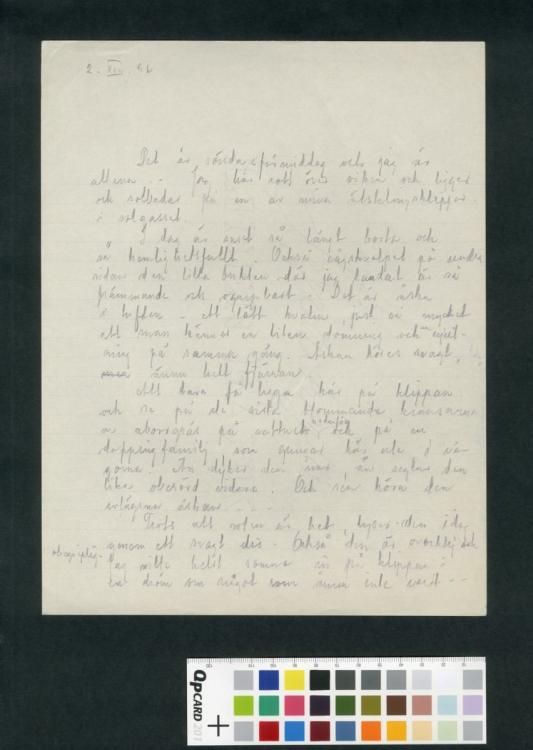 2. VIII. 42
Det är söndagsförmiddag och jag är
allena. - Jag har rott över viken och ligger
och solbadar på en av mina älsklingsklippor
i solgasset.
I dag är allt så långt borta och
så hemlighetsfullt. Också vågskvalpet på andra
sidan den lilla bukten där jag landat är så
främmande och ogripbart. Det är åska
i luften - ett lätt kvalm, just så mycket
att man känner en liten domning och
ning på samma gång. Åskan höres svagt,
ännu helt fjärran.
Att bara få ligga här på klippan
och se på de sista kransarna
av aborrgräs på vattnet och på en
doppingfamilj som gungar här ute i vå-
gorna. Än dyker den ner, än seglar den
lika oberörd vidare. Och sen höra den
avlägsna åskan - - -
Trots att solen är het, lyser den i dag
genom ett svagt dis. Också den är overklig och
obegriplig.
Jag ville helst somna in på klippan i
en dröm om något som ännu inte varit - -
QPCARD 201